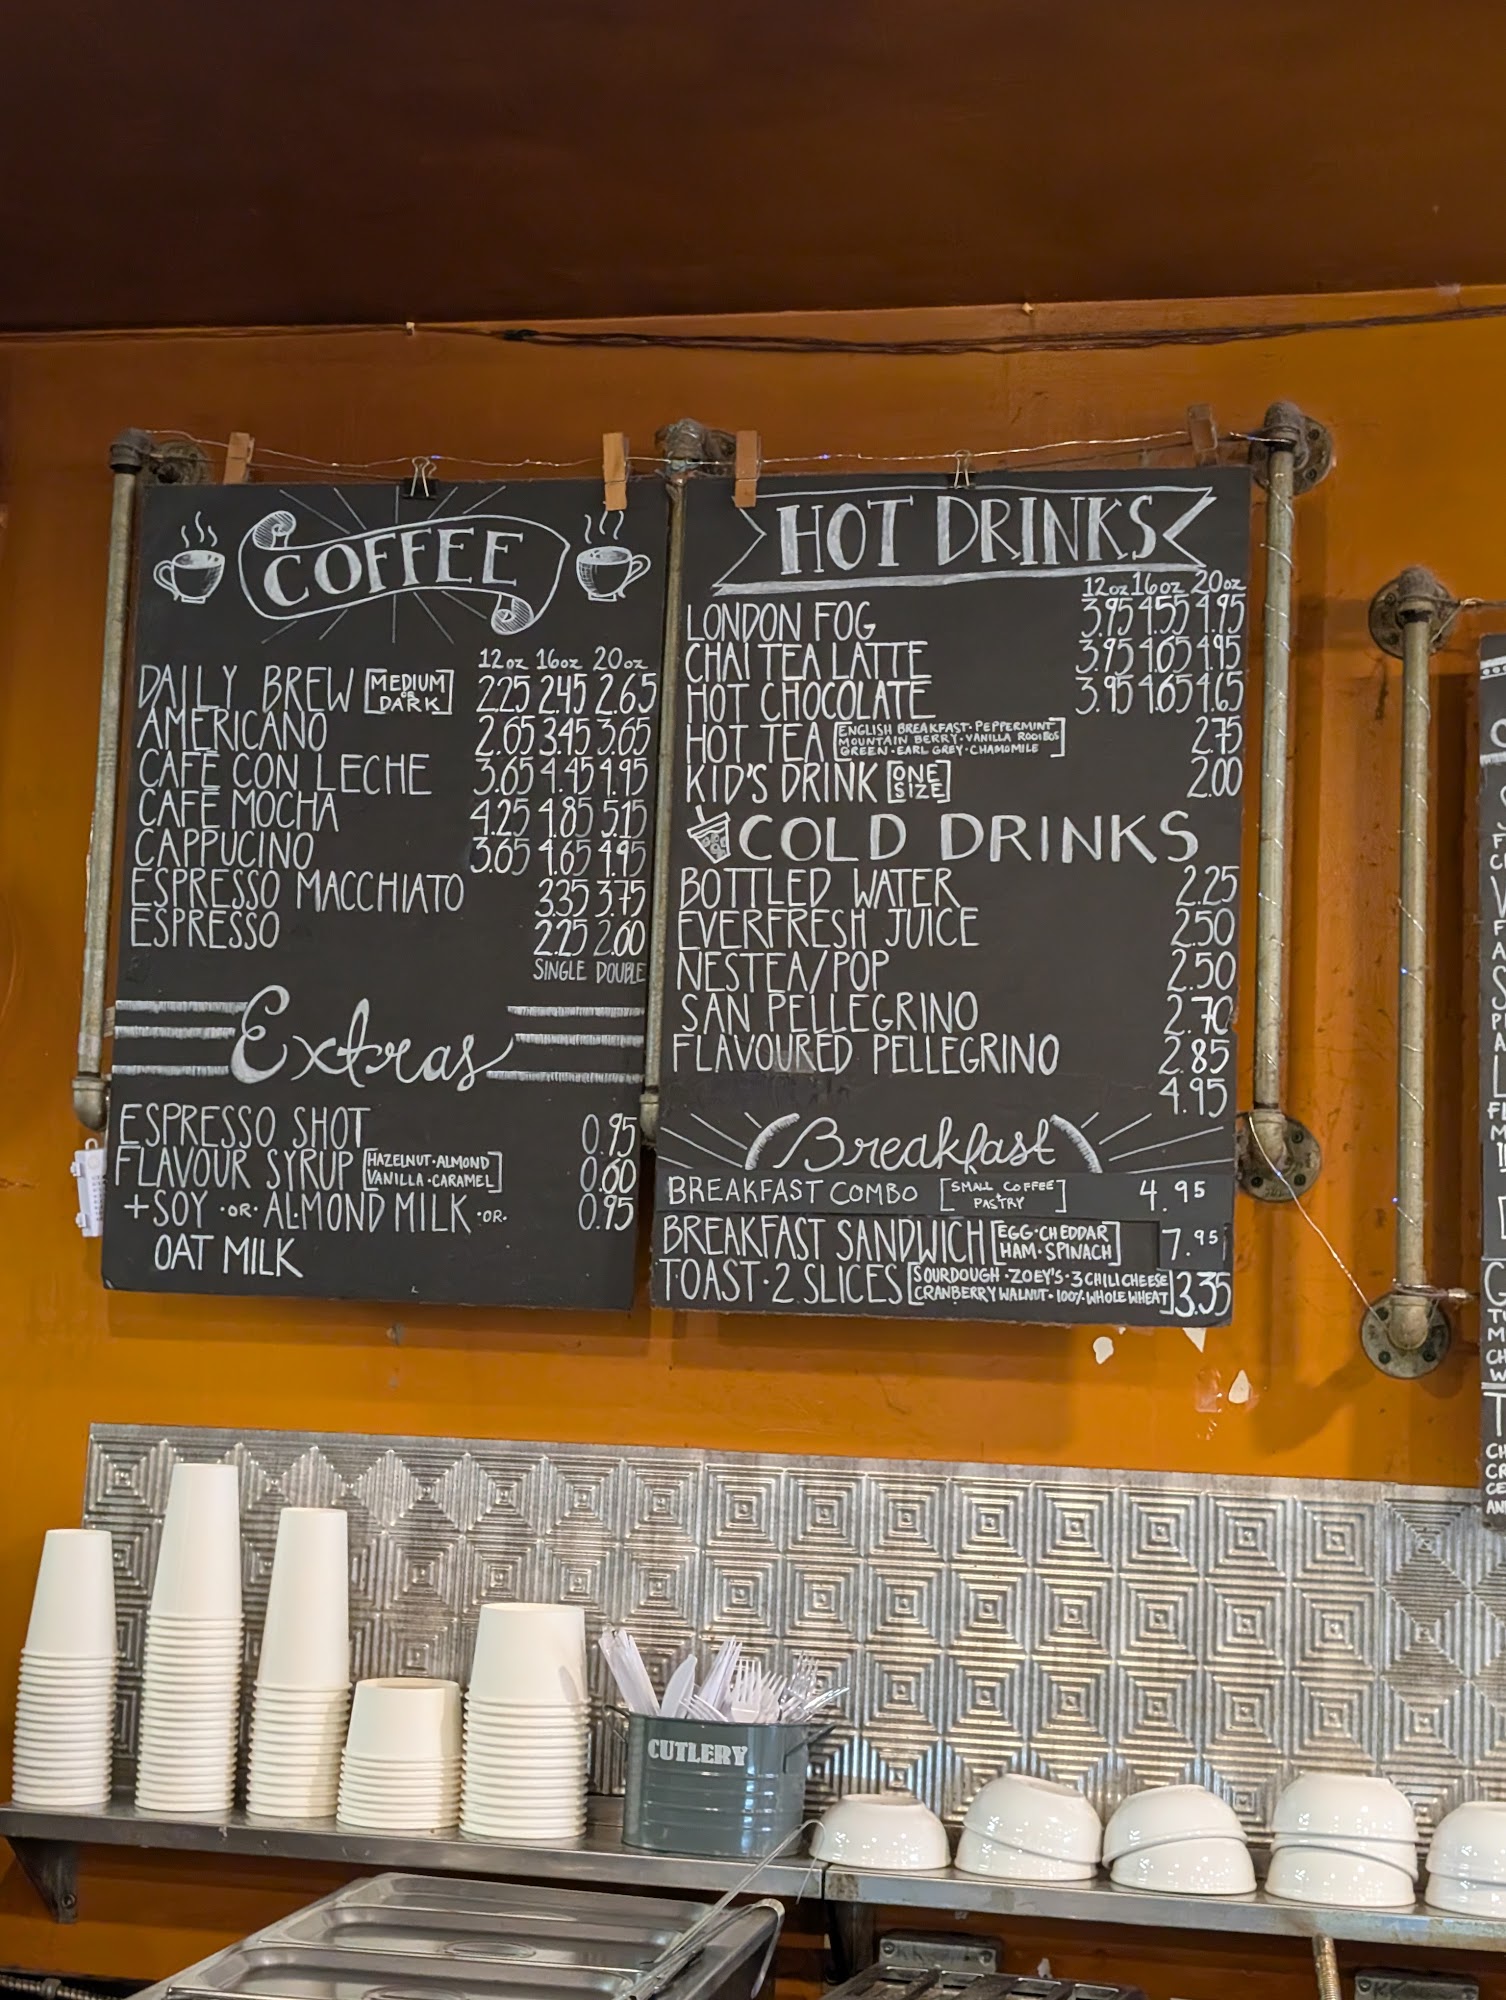 COFFEE
12oz 16oz 20oz
DAILY BREW [MEDIUM OR DARK] 2.25 2.45 2.65
AMERICANO 2.65 3.45 3.65
CAFÉ CON LECHE 3.65 4.45 4.95
CAFÉ MOCHA 4.25 4.85 5.15
CAPPUCINO 3.65 4.65 4.95
ESPRESSO MACCHIATO 3.35 3.75
ESPRESSO 2.25 2.60
SINGLE DOUBLE
Extras
ESPRESSO SHOT 0.95
FLAVOUR SYRUP [HAZELNUT · ALMOND VANILLA · CARAMEL] 0.60
+SOY ·OR· ALMOND MILK ·OR· 0.95
OAT MILK
HOT DRINKS
12oz 16oz 20oz
LONDON FOG 3.95 4.55 4.95
CHAI TEA LATTE 3.95 4.65 4.95
HOT CHOCOLATE 3.95 4.65 4.65
HOT TEA [ENGLISH BREAKFAST · PEPPERMINT MOUNTAIN BERRY · VANILLA ROOIBOS GREEN · EARL GREY · CHAMOMILE] 2.75
KID'S DRINK [ONE SIZE] 2.00
COLD DRINKS
BOTTLED WATER 2.25
EVERFRESH JUICE 2.50
NESTEA/POP 2.50
SAN PELLEGRINO 2.70
FLAVOURED PELLEGRINO 2.85
4.95
Breakfast
BREAKFAST COMBO [SMALL COFFEE + PASTRY] 4.95
BREAKFAST SANDWICH [EGG · CHEDDAR HAM · SPINACH] 7.95
TOAST · 2 SLICES [SOURDOUGH · ZOEY'S · 3 CHILI CHEESE CRANBERRY WALNUT · 100% WHOLE WHEAT] 3.35
CUTLERY